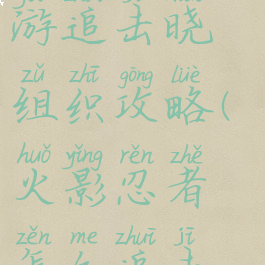 游追击晓
zǔ zhī gōng lüè
组织攻略(
huǒ yǐng rěn zhě
火影忍者
zěn me zhuī jī
怎么追击